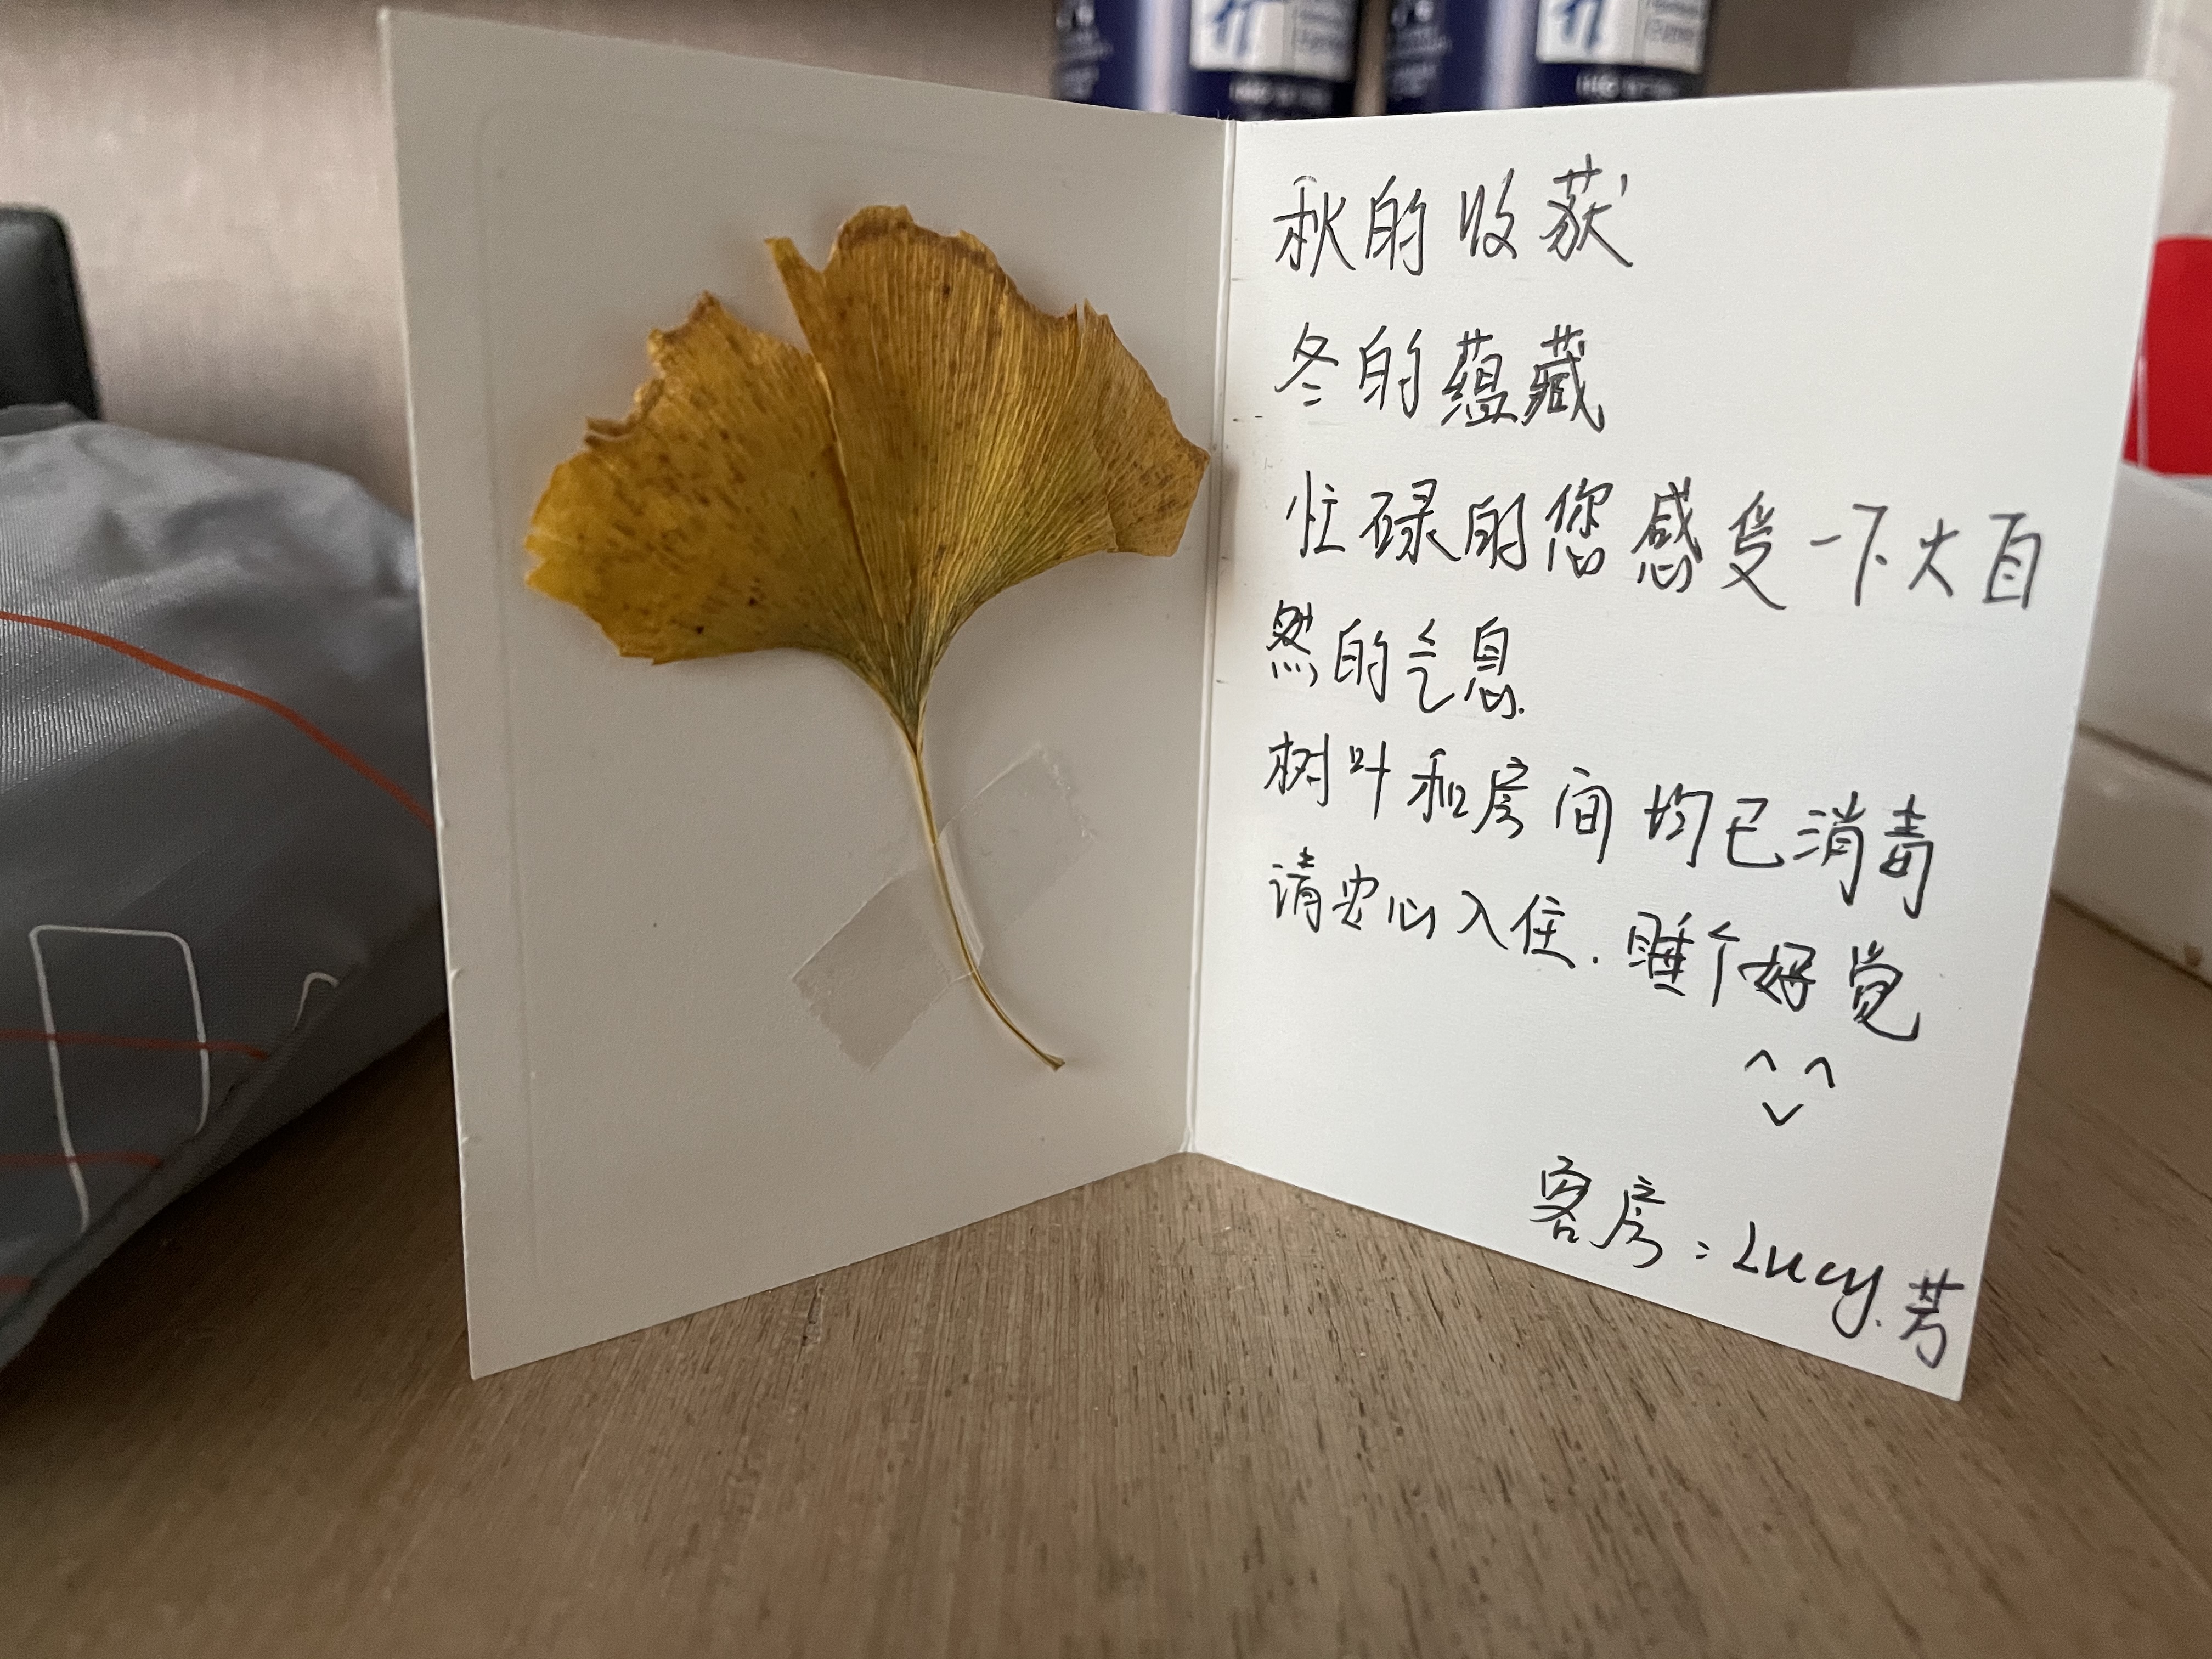 秋的收获
冬的蕴藏
忙碌的您感受一下大自
然的气息
树叶和房间均已消毒
请安心入住.睡个好觉
客房:Lucy.芳